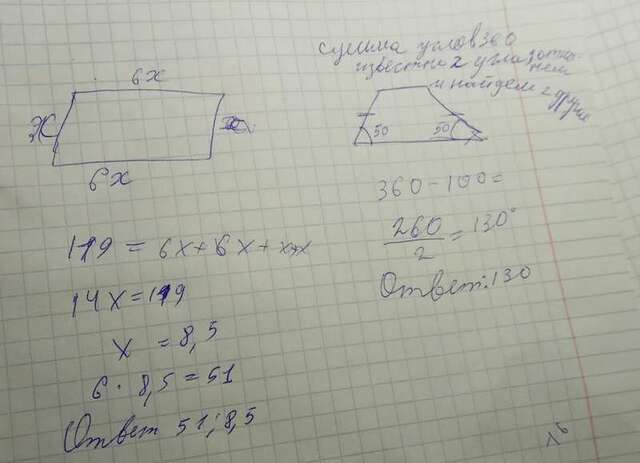 6x
x
6x
119 = 6x + 6x + x+x
14x = 119
x = 8,5
6 · 8,5 = 51
Ответ 51; 8,5
сумма углов 360
известно 2 угла отни-
мем
и найдем 2 других
50 50
360 - 100 =
260
2
= 130°
Ответ: 130